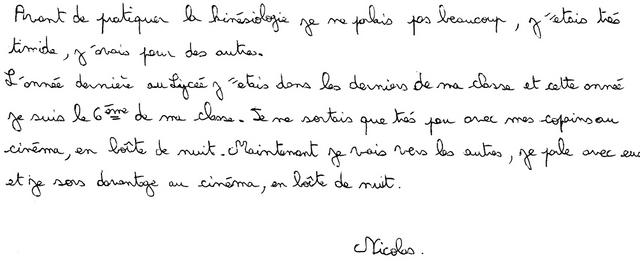 Avant de pratiquer la kinésiologie je ne parlais pas beaucoup, j'étais très
timide, j'avais peur des autres.
L'année dernière au Lycée j'étais dans les derniers de ma classe et cette année
je suis le 6ème de ma classe. Je ne sortais que très peu avec mes copains au
cinéma, en boîte de nuit. Maintenant je vais vers les autres, je parle avec eux
et je sors davantage au cinéma, en boîte de nuit.
Nicolas.